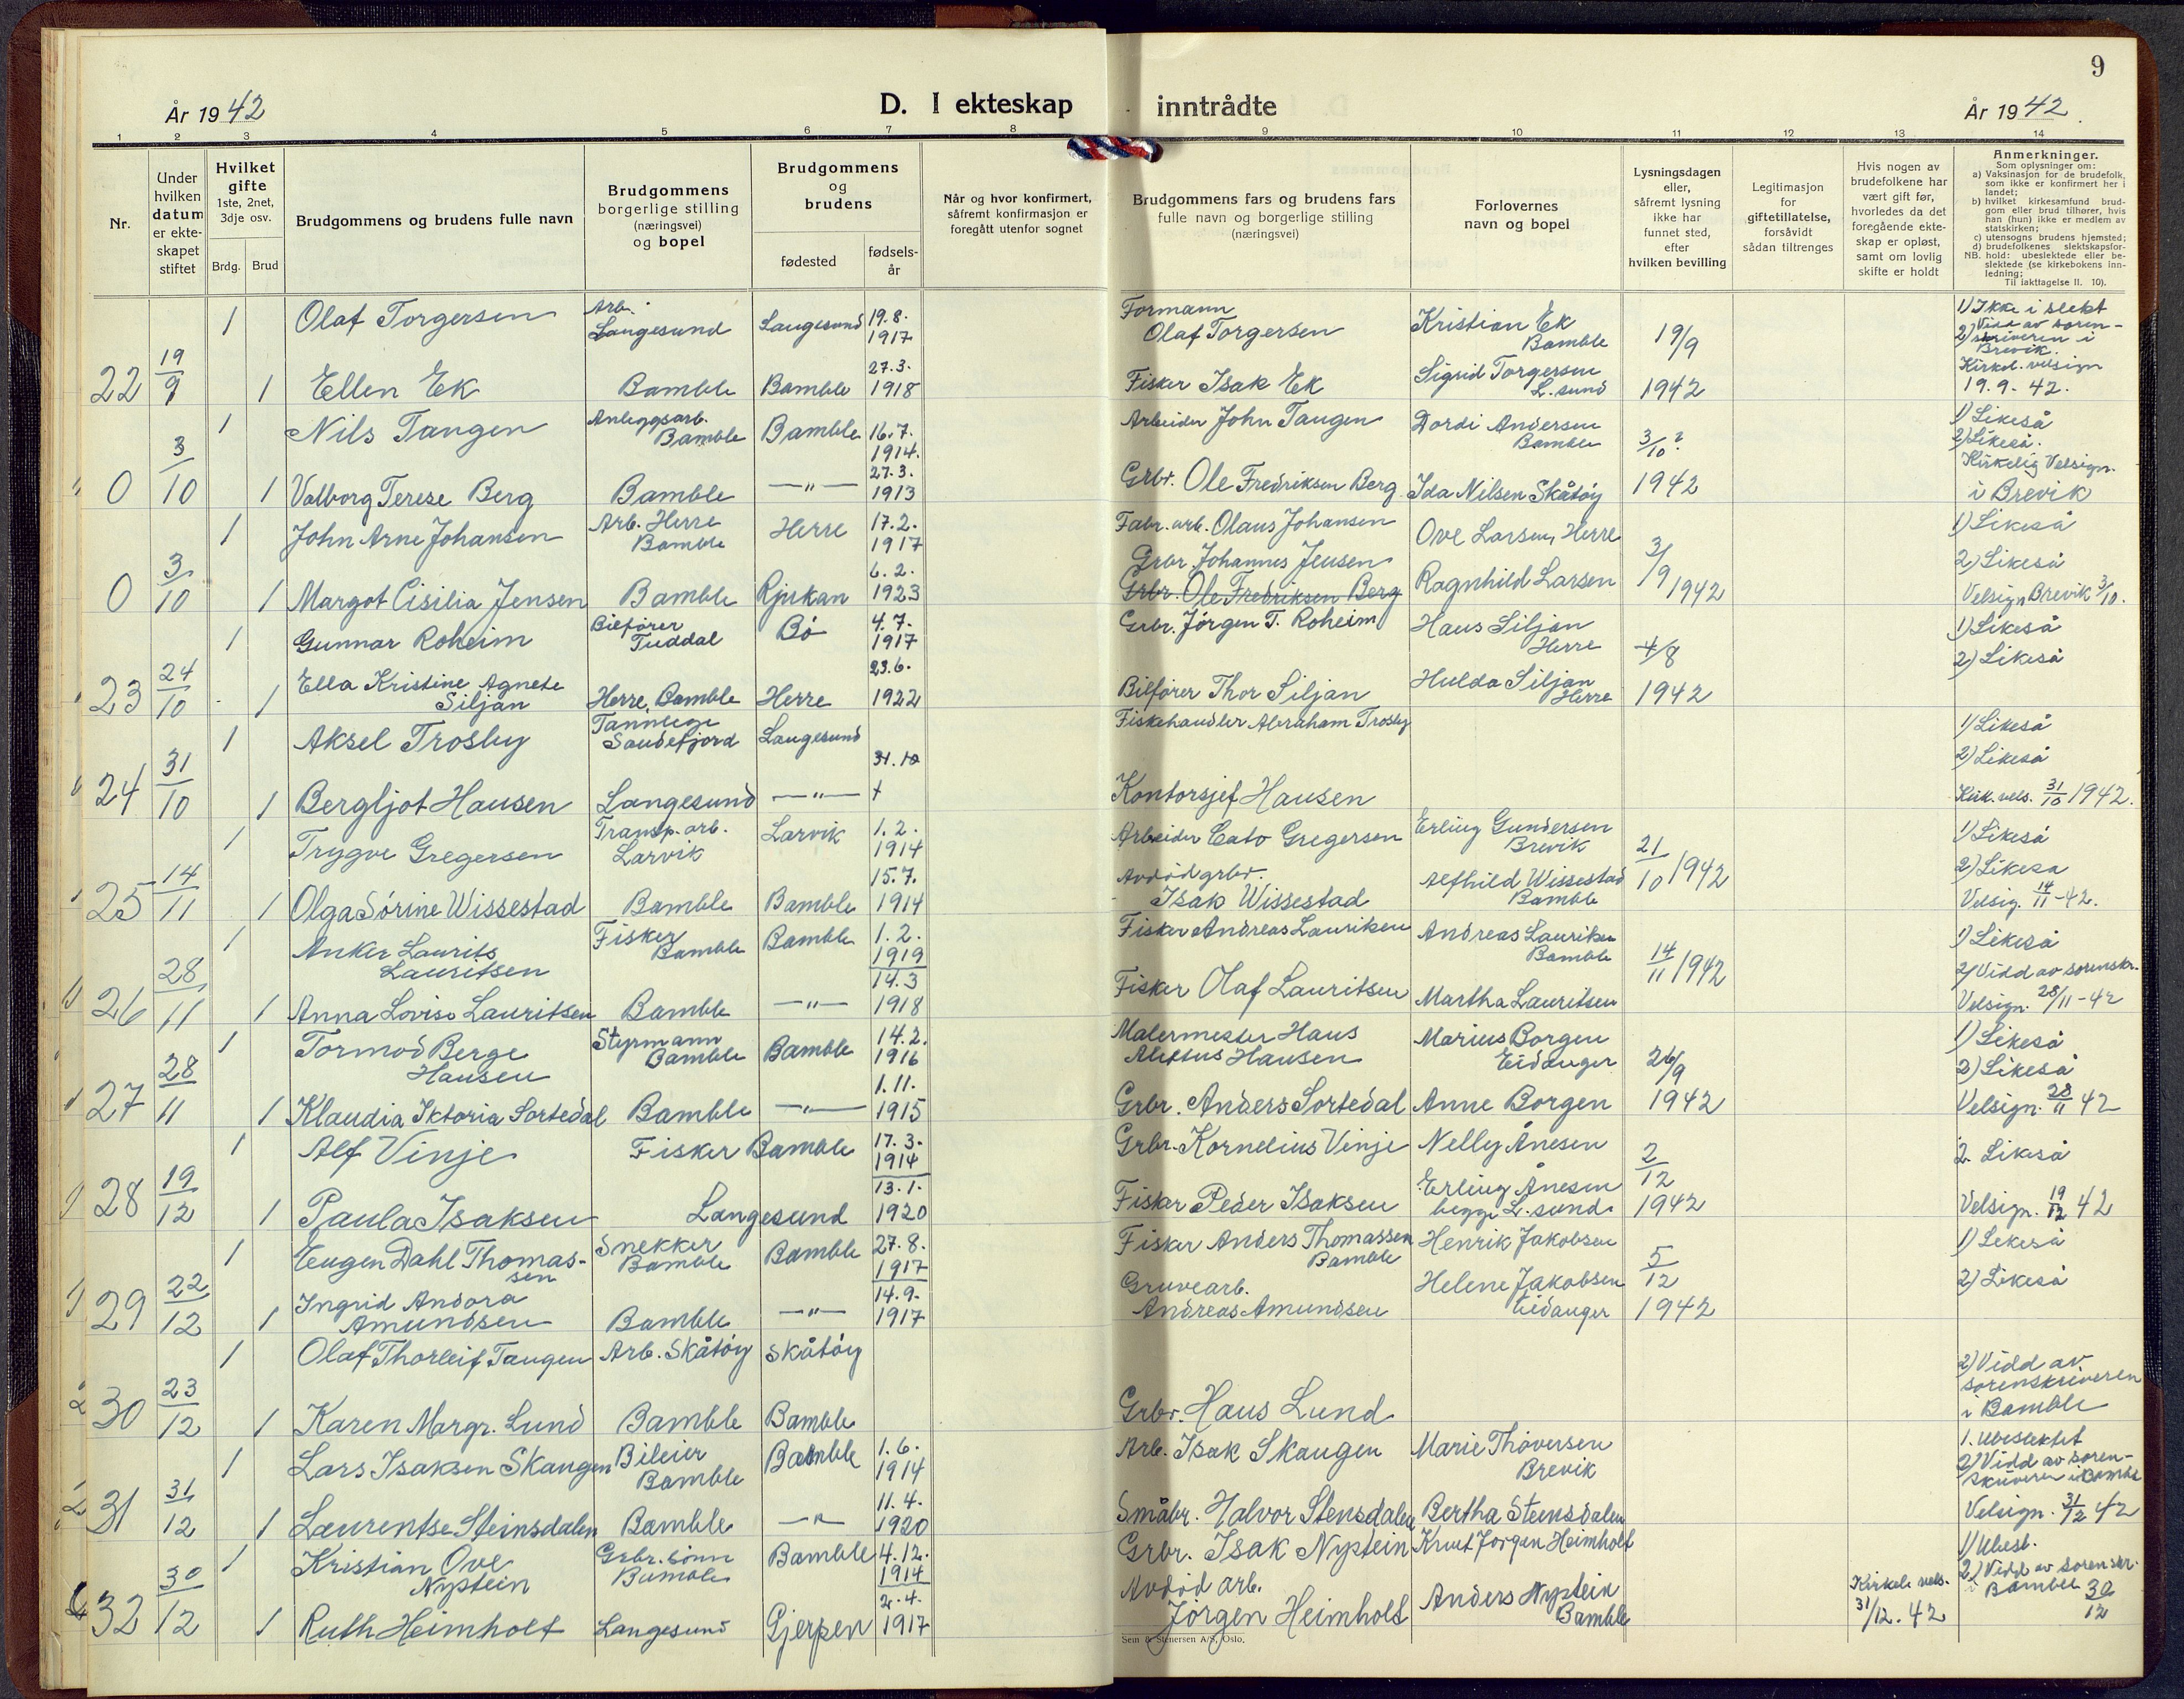 År 1942
D. I ekteskap
inntrådte
År 1942.
9
1 2 3 4 5 6 7 8 9 10 11 12 13 14
Nr.
Under
hvilken
datum
er ekte-
skapet
stiftet
Hvilket
gifte
1ste, 2net,
3dje osv.
Brdg. Brud
Brudgommens og brudens fulle navn
Brudgommens
borgerlige stilling
(næringsvei)
og bopel
Brudgommens
og
brudens
fødested
fødsels-
år
Når og hvor konfirmert,
såfremt konfirmasjon er
foregått utenfor sognet
Brudgommens fars og brudens fars
fulle navn og borgerlige stilling
(næringsvei)
Forlovernes
navn og bopel
Lysningsdagen
eller,
såfremt lysning
ikke har
funnet sted,
efter
hvilken bevilling
Legitimasjon
for
giftetillatelse,
forsåvidt
sådan tiltrenges
Hvis nogen av
brudefolkene har
vært gift før,
hvorledes da det
foregående ekte-
skap er opløst,
samt om lovlig
skifte er holdt
Anmerkninger.
Som oplysninger om:
a) Vaksinasjon for de brudefolk,
som ikke er konfirmert her i
landet;
b) hvilket kirkesamfund brud-
gom eller brud tilhører, hvis
han (hun) ikke er medlem av
statskirken;
c) utensogns brudens hjemsted;
d) brudefolkenes slektskapsfor-
NB. hold: ubeslektede eller be-
slektede (se kirkebokens inn-
ledning;
Til iakttagelse II. 10).
1 Olaf Torgersen Arb. Langesund Langesund 19.8. 1917 Formann Olaf Torgersen Kristian Ek Bamble 19/9 1) Ikke i slekt
2) Vidd av soren-
skriveren i
Brevik.
22 19/9 1 Ellen Ek Bamble Bamble 27.3. 1918 Fisker Isak Ek Sigrid Torgersen L.sund 1942 Kirkel. velsign
19.9.42.
1 Nils Tangen Anleggsarb. Bamble Bamble 16.7. 1914. Arbeider John Tangen Dordi Andersen Bamble 3/10? 1) Likeså
2) Likeså.
0 3/10 1 Valborg Terese Berg Bamble —"— 27.3. 1913 Grbr. Ole Fredriksen Berg Ida Nilsen Skåtøy 1942 Kirkelig Velsign.
i Brevik
1 John Arne Johansen Arb. Herre Bamble Herre 17.2. 1917 Fabr.arb. Olaus Johansen Ove Larsen, Herre 3/9 1) Likeså
0 3/10 1 Margot Cisilia Jensen Bamble Rjukan 6.2. 1923 Grbr. Johannes Jensen
Grbr. Ole Fredriksen Berg Ragnhild Larsen 1942 2) Likeså
Velsign Brevik 3/10.
1 Gunnar Roheim Bilfører Tuddal Bø 4.7. 1917 Grbr. Jørgen T. Roheim Hans Siljan Herre 4/8 1) Likeså
2) Likeså
23 24/10 1 Ella Kristine Agnete Siljan Herre, Bamble Herre 23.6. 1922 Bilfører Thor Siljan Hulda Siljan Herre 1942
1 Aksel Trosby Tannlege Sandefjord Langesund Fiskehandler Abraham Trosby 1) Likeså
2) Likeså
24 31/10 1 Bergljot Hansen Langesund —"— 31.10 Kontorsjef Hansen Kirk. vels. 31/10 1942.
1 Trygve Gregersen Transp.arb. Larvik Larvik 1.2. 1914 Arbeider Cato Gregersen Erling Gundersen Brevik 21/10 1942 1) Likeså
2) Likeså
25 14/11 1 Olga Sørine Wissestad Bamble Bamble 15.7. 1914 Avdød grbr. Isak Wissestad Alfhild Wissestad Bamble Velsig. 14/11-42.
1 Anker Laurits Lauritsen Fisker Bamble Bamble 1.2. 1919 Fisker Andreas Lauritsen Andreas Lauritsen Bamble 14/11 1942 1) Likeså
2) Vidd av sorenskr.
26 28/11 1 Anna Lovise Lauritsen Bamble —"— 14.3 1918 Fisker Olaf Lauritsen Martha Lauritsen Velsign. 28/11-42
1 Tormod Berge Hansen Styrmann Bamble Bamble 14.2. 1916 Malermester Hans Alettus Hansen Marius Borgen Eidanger 26/9 1) Likeså
2) Likeså
27 28/11 1 Klaudia Iktoria Sortedal Bamble —"— 1.11. 1915 Grbr. Anders Sortedal Anne Borgen 1942 Velsign. 28/11 42
1 Alf Vinje Fisker Bamble 17.3. 1914 Grbr. Kornelius Vinje Nelly Ånesen 2/12 2. Likeså
28 19/12 1 Paula Isaksen Langesund 13.1. 1920 Fisker Peder Isaksen Erling Ånesen begge L.sund. 1942 Velsign. 19/12 42
1 Eugen Dahl Thomas-
sen Snekker Bamble Bamble 27.8. 1917 Fisker Anders Thomassen Bamble Henrik Jakobsen 5/12 1) Likeså
29 22/12 1 Ingrid Andora Amundsen Bamble —"— 14.9. 1917 Gruvearb. Andreas Amundsen Helene Jakobsen Eidanger 1942 2) Likeså
1 Olaf Thorleif Tangen Arb. Skåtøy Skåtøy
30 23/12 1 Karen Margr. Lund Bamble Bamble Grbr. Hans Lund 2) Vidd av
sorenskriveren
i Bamble
1 Lars Isaksen Skaugen Bileier Bamble Bamble 1.6. 1914 Arb. Isak Skaugen Marie Thoversen Brevik 1. Ubeslektet
2) Vidd av soren-
skriveren i Bamble
31 31/12 1 Laurentse Steinsdalen Bamble —"— 11.4. 1920 Småbr. Halvor Stensdalen Bertha Stensdalen Velsign. 31/12 42
1 Kristian Ove Nystein Grbr.sønn Bamble Bamble 4.12. 1914 Grbr. Isak Nystein Knut Jørgen Heimholt 1) Ubesl.
2) Vidd av sorenskr.
i Bamble 30/12
32 30/12 1 Ruth Heimholt Langesund Gjerpen 2.4. 1917 Avdød arb. Jørgen Heimholt Anders Nystein Bamble Kirkele vels.
31/12.42
Sem & Stenersen A/S, Oslo.